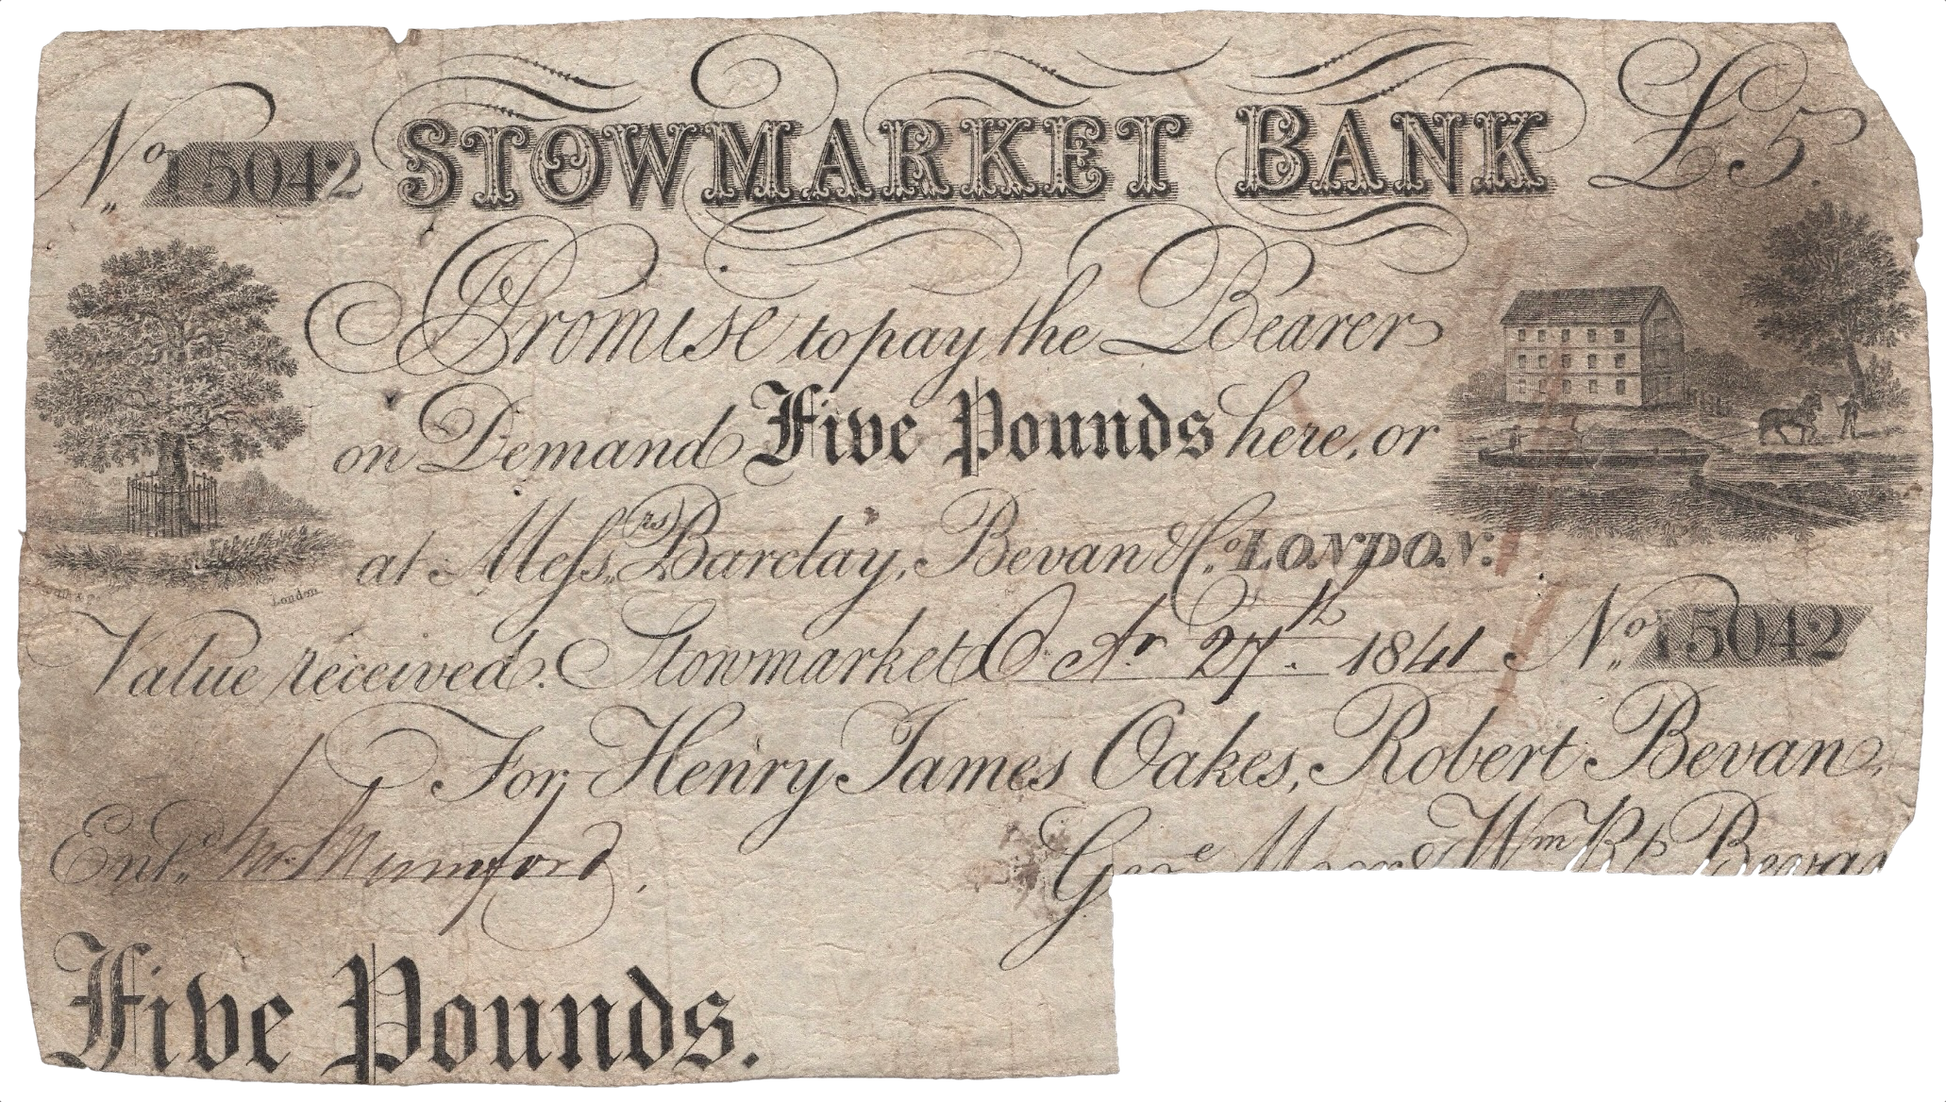 No. 15042 STOWMARKET BANK £5.
I Promise to pay the Bearer
on Demand Five Pounds here, or
at Messrs. Barclay, Bevan & Co. LONDON.
London
Value received. Stowmarket 27th 1841 No. 15042
For Henry James Oakes, Robert Bevan,
Geoe. Moor & Wm. Rt. Bevan
Entd. Mumford
Five Pounds.